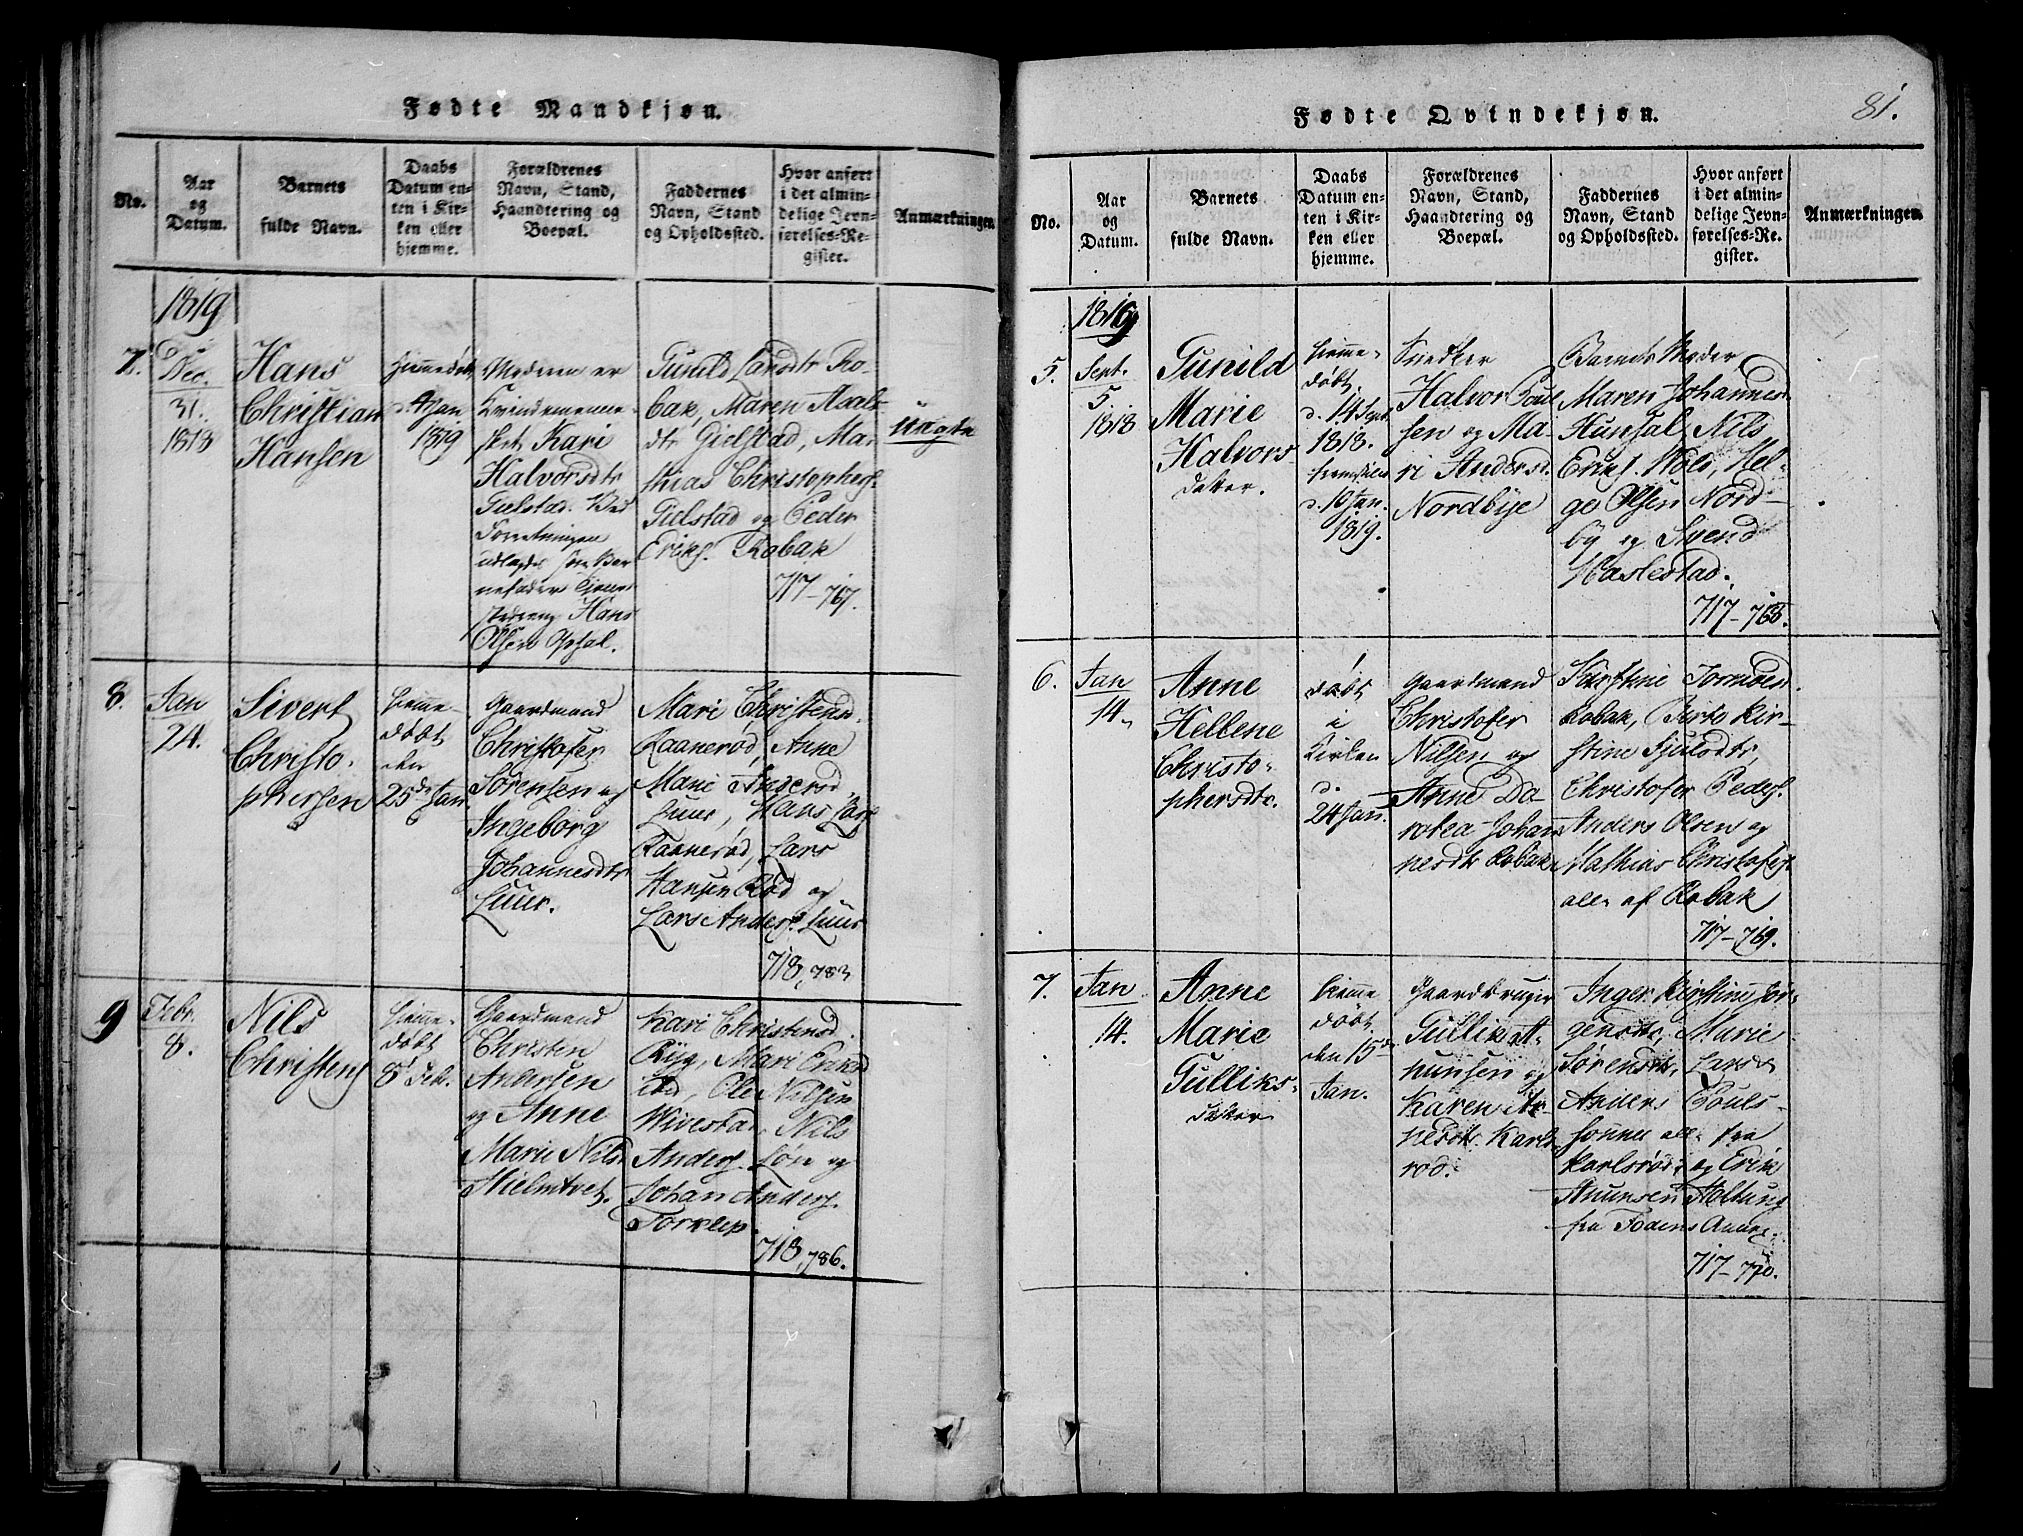 Fødte Mandkjøn.
No.
Aar
og
Datum.
Barnets
fulde Navn.
Daabs
Datum en-
ten i Kir-
ken eller
hjemme.
Forældrenes
Navn, Stand,
Haandtering og
Boepæl.
Faddernes
Navn, Stand
og Opholdssted.
Hvor anført
i det almin-
delige Jevn-
førelses-Re-
gister.
Anmærkningen
1819
7.
Dec.
31.
1818
Hans
Christian
Hansen
Hiemmedøbt
d. 4 Jan
1819
Moderen er
Kari
Halvorsdtr
Gielstad. Ved
Forretningen
udlagdes som Bar
nefader
Hans
Olsen Opsal.
Gunild Larsdtr Ro-
bak, Maren
dtr Gielstad, Ma-
thias Christophers.
Gielstad og Peder
Eriks. Robak
717-767.
Uægte
8.
Jan
24.
Sivert
Christo-
phersen
hiemme-
døbt
den
25de Jan
Gaardmand
Christofer
Sørensen og
Ingeborg
Johannesdtr
Luur.
Mari Christensd.
Raanerød, Anne
Marie Andersd.
Luur, Hans Lars.
Raanerød, Lars
Hansen Rød og
Lars Anders. Luur
718, 783
9
Febr.
8.
Nils
Christens.
hiemme-
døbt
8 Febr.
Gaardmand
Christen
Andersen
og Anne
Marie Nilsd.
Hielmtvet.
Kari Christensd.
Ryg, Mari Eriksd
ibid, Ole Nilsen
Wivestad, Nils
Anders. Løn og
Johan Anders.
718, 786.
Fødte Qvindekjøn.
81.
No.
Aar
og
Datum.
Barnets
fulde Navn.
Daabs
Datum en-
ten i Kir-
ken eller
hjemme.
Forældrenes
Navn, Stand,
Haandtering og
Boepæl.
Faddernes
Navn, Stand
og Opholdssted.
Hvor anført
i det almin-
delige Jevn-
førelses-Re-
gister.
Anmærkningen
1819
5.
Sept.
5
1818
Gunild
Marie
Halvors-
datter.
hiemme-
døbt
d. 14 Sept.
1818.
d. 10 Jan.
1819.
Snedker
Halvor Poul
sen og Ma-
ri Andersd.
Nordbye
Barnets Moder,
Maren Johannesd
Hunsal, Nils
Eriks. Wold, Hel-
ge Olsen Nord-
by og Svend
Haslestad.
717-768.
6.
Jan
14.
Anne
Hellene
Christo-
phersdtr.
døbt
i
Kirken
d.
24 Jan.
Gaardmand
Christofer
Nilsen og
Anne Do-
rotea Johan
nesdtr Robak
Kirstine
Robak, Berte Kir-
stine
Christofer Peders.
Anders Olsen og
Mathias Christofers.
alle af Robak
717-769.
7.
Jan
14.
Anne
Marie
Gulliks-
datter
hiemme
døbt
den 15de
Jan.
Gaardbruger
Gullik A-
nunsen og
Karen Ar-
nesdtr. Karls
rød.
Inger Kirstine Jør-
gensdtr, Marie
Sørensdtr, Lars
Anders Pouls-
sønner alle fra
Karlsrød, og Erik
Anunsen
717-770.